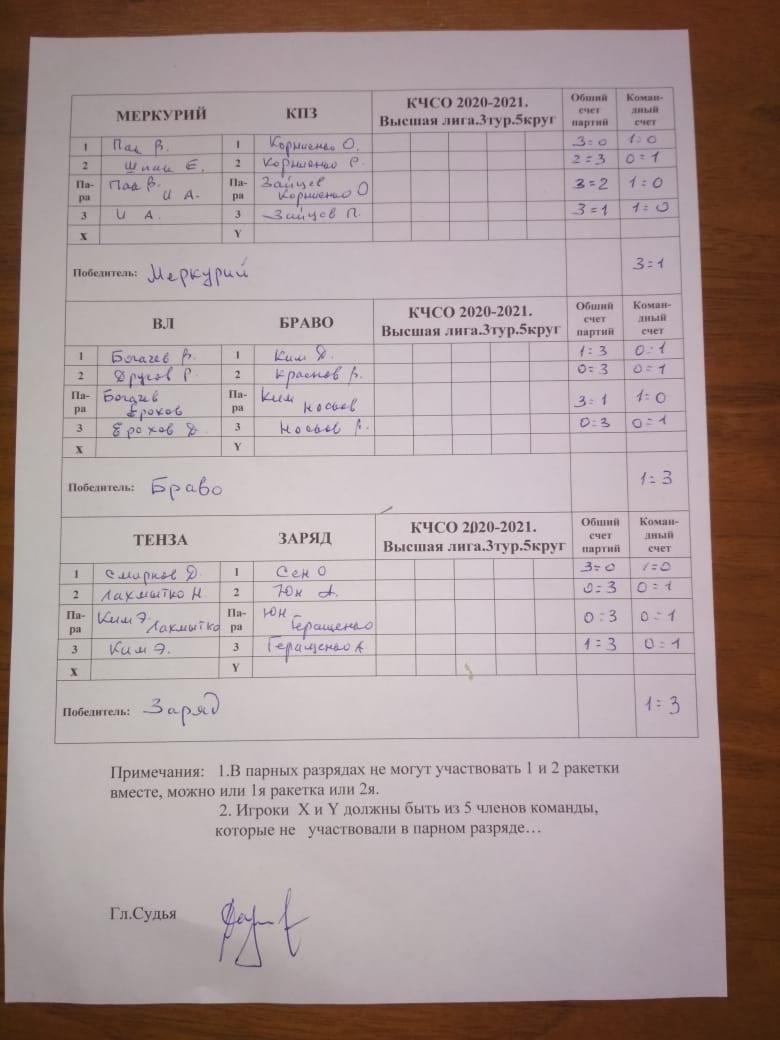 МЕРКУРИЙ КПЗ КЧСО 2020-2021. Высшая лига.3тур.5круг Общий счет партий Коман-дный счет
1 Пак В. 1 Корниенко О. 3=0 1=0
2 Шпак Е. 2 Корниенко Р. 2=3 0=1
Па-ра Пак В. И А. Па-ра Зайцев Корниенко О 3=2 1=0
3 И А. 3 Зайцов П. 3=1 1=0
X Y
Победитель: Меркурий 3=1
ВЛ БРАВО КЧСО 2020-2021. Высшая лига.3тур.5круг Общий счет партий Коман-дный счет
1 Богачев В. 1 Ким Д. 1=3 0=1
2 Другов Р. 2 Краснов В. 0=3 0=1
Па-ра Богачев Ерохов Па-ра Ким Носков 3=1 1=0
3 Ерохов Д. 3 Носков В. 0=3 0=1
X Y
Победитель: Браво 1=3
ТЕНЗА ЗАРЯД КЧСО 2020-2021. Высшая лига.3тур.5круг Общий счет партий Коман-дный счет
1 Смирнов Д. 1 Сен О 3=0 1=0
2 Лахмытко Н. 2 Юн А. 0=3 0=1
Па-ра Ким Э. Лахмытко Па-ра Юн Геращенко 0=3 0=1
3 Ким Э. 3 Геращенко А 1=3 0=1
X Y
Победитель: Заряд 1=3
Примечания: 1.В парных разрядах не могут участвовать 1 и 2 ракетки
вместе, можно или 1я ракетка или 2я.
2. Игроки X и Y должны быть из 5 членов команды,
которые не участвовали в парном разряде…
Гл.Судья